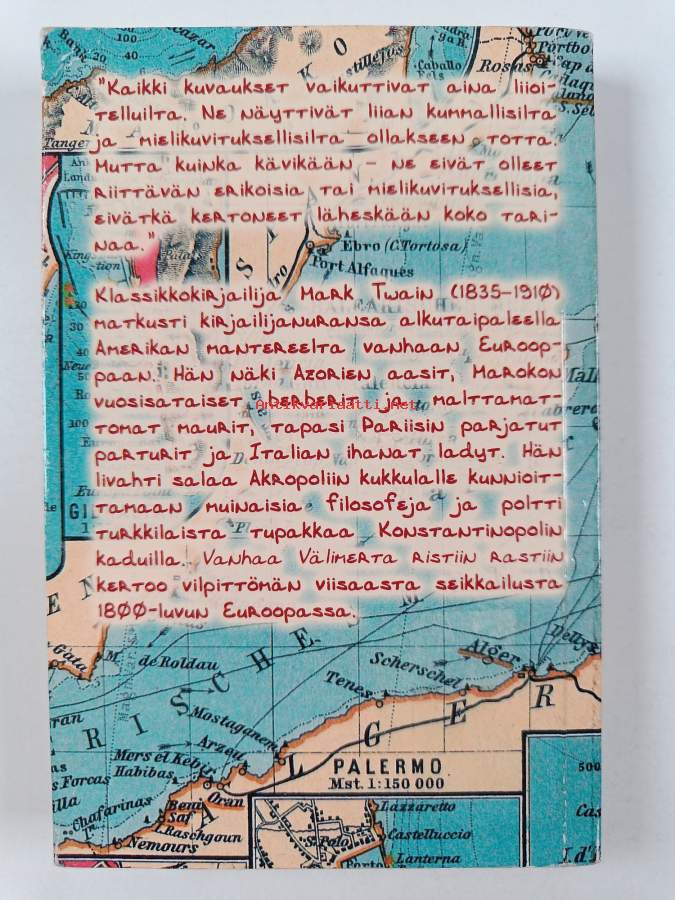 40
100
40
20
Caballo
Rosas
Portbo
Tanger
"Kaikki kuvaukset vaikuttivat aina liioi-
telluilta. Ne näyttivät liian kummallisilta
ja mielikuvituksellisilta ollakseen totta.
Mutta kuinka kävikään – ne eivät olleet
riittävän erikoisia tai mielikuvituksellisia,
eivätkä kertoneet läheskään koko tari-
naa."
Ebro (C. Tortosa)
Port Alfaques
Klassikkokirjailija Mark Twain (1835–1910)
matkusti kirjailijanuransa alkutaipaleella
Amerikan mantereelta vanhaan Euroop-
paan. Hän näki Azorien aasit, Marokon
vuosisataiset berberit ja malttamat-
tomat maurit, tapasi Pariisin parjatut
parturit ja Italian ihanat ladyt. Hän
livahti salaa Akropoliin kukkulalle kunnioit-
tamaan muinaisia filosofeja ja poltti
turkkilaista tupakkaa Konstantinopolin
kaduilla. Vanhaa Välimerta ristiin rastiin
kertoo vilpittömän viisaasta seikkailusta
1800-luvun Euroopassa.
Antikvariaatti.net
Gata
M. de Roldau
RISCHES M
Dellys
Alger
Scherschel
Tenes
Mostaganem
Arzeu
Mers el Kebir
Habibas
Oran
ALGER
Forcas
Chafarinas
Beni
Saf
I. Raschgoun
Nemours
PALERMO
Mst. 1:150 000
500
Lazzaretto
Castelluccio
S. Polo
Porto
Lanterna